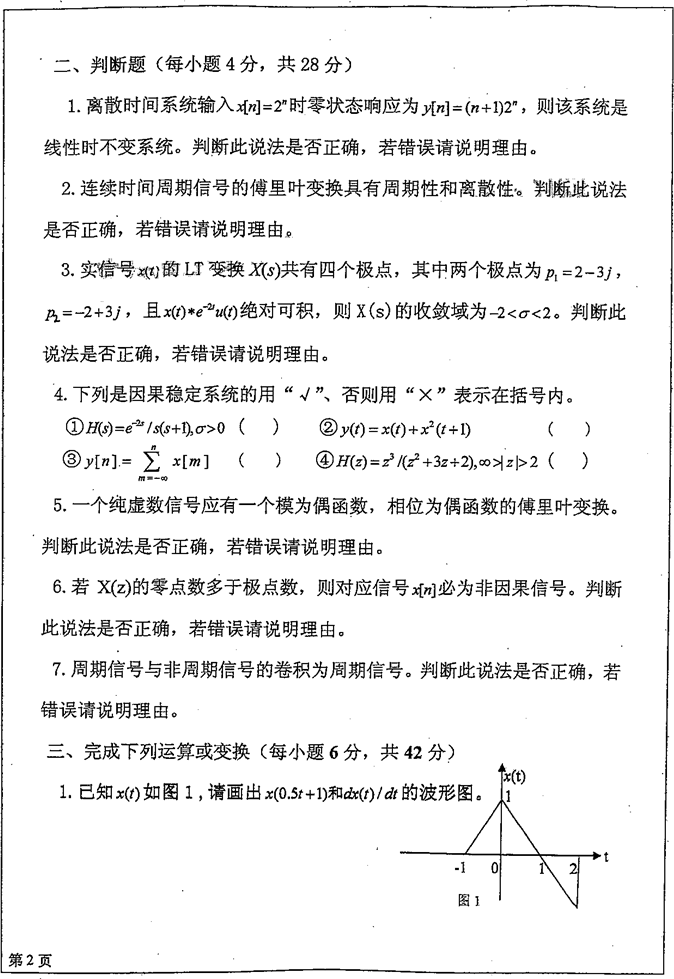 二、判断题（每小题 4 分，共 28 分）
1. 离散时间系统输入 x[n]=2ⁿ 时零状态响应为 y[n]=(n+1)2ⁿ，则该系统是
线性时不变系统。判断此说法是否正确，若错误请说明理由。
2. 连续时间周期信号的傅里叶变换具有周期性和离散性。判断此说法
是否正确，若错误请说明理由。
3. 实信号 x(t) 的 LT 变换 X(s)共有四个极点，其中两个极点为 p₁=2−3j，
p₂=−2+3j，且 x(t)*e⁻²ᵗu(t) 绝对可积，则 X(s)的收敛域为 −2<σ<2。判断此
说法是否正确，若错误请说明理由。
4. 下列是因果稳定系统的用“√”、否则用“×”表示在括号内。
①H(s)=e⁻²ˢ/s(s+1),σ>0 （ ） ②y(t)=x(t)+x²(t+1) （ ）
③y[n]=∑_{m=-∞}^{n} x[m] （ ） ④H(z)=z³/(z²+3z+2),∞>|z|>2（ ）
5. 一个纯虚数信号应有一个模为偶函数，相位为偶函数的傅里叶变换。
判断此说法是否正确，若错误请说明理由。
6. 若 X(z)的零点数多于极点数，则对应信号 x[n]必为非因果信号。判断
此说法是否正确，若错误请说明理由。
7. 周期信号与非周期信号的卷积为周期信号。判断此说法是否正确，若
错误请说明理由。
三、完成下列运算或变换（每小题 6 分，共 42 分）
1. 已知 x(t) 如图 1，请画出 x(0.5t+1)和dx(t)/dt 的波形图。
x(t)
1
t
-1 0 1 2
图 1
第 2 页